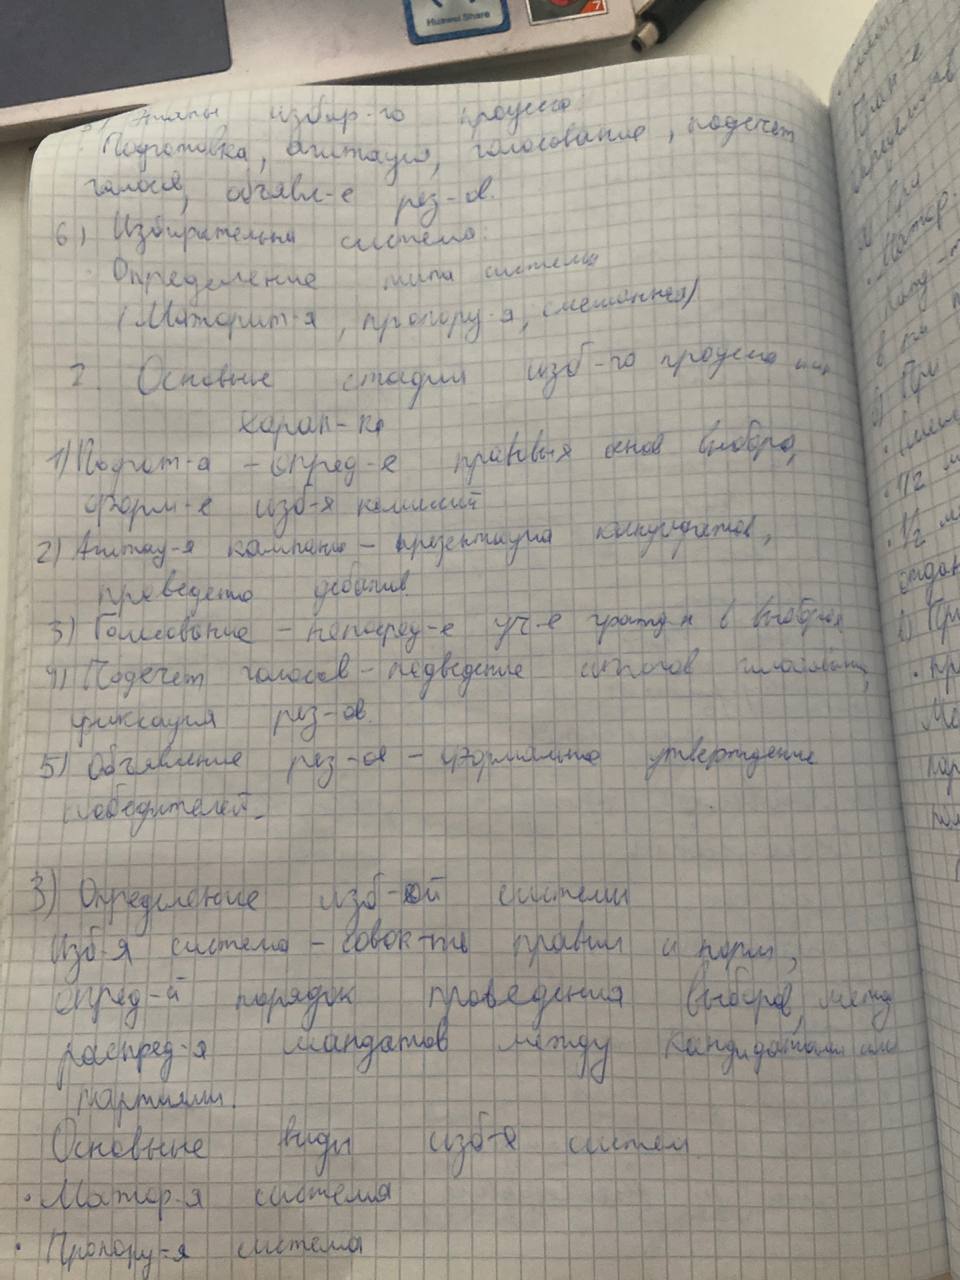 Huawei Share
5) Этапы избир-го процесса:
Подготовка, агитация, голосование, подсчет
голосов, объявл-е рез-ов.
6) Избирательна система:
Определение типа системы
(Мажорит-я, пропорц-я, смешанная)
2. Основные стадии изб-го процесса и их
харак-ка
1) Подгот-а - опред-е правовых основ выборов,
форм-е изб-х комиссий
2) Агитац-я кампания - презентация кандидатов,
проведение дебатов.
3) Голосование - непосред-е уч-е гражд-н в выборах
4) Подсчет голосов - подведение итогов голосования,
фиксация рез-ов.
5) Объявление рез-ов - формальное утверждение
победителей.
3) Определение изб-ой системы
Изб-я система - совок-ть правил и норм,
опред-й порядок проведения выборов, метод
распред-я мандатов между кандидатами или
партиями.
Основные виды изб-х систем
· Мажор-я система
· Пропорц-я система